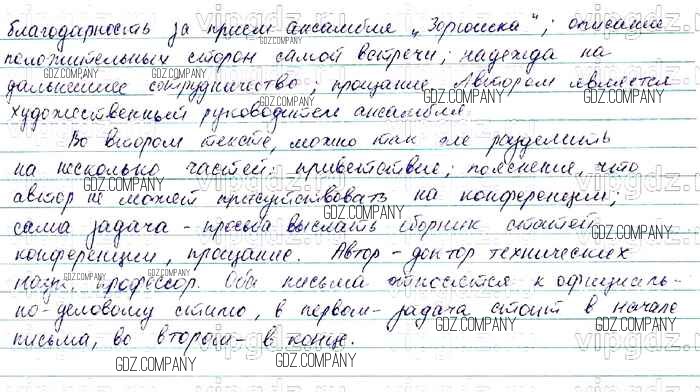 благодарность за прием ансамбля „Зорюшка"; описание
положительных сторон самой встречи; надежда на
дальнейшее сотрудничество; прощание. Автором является
художественный руководитель ансамбля.
Во втором тексте, можно так же разделить
на несколько частей: приветствие; пояснение, что
автор не может присутствовать на конференции;
сама задача - просьба выслать сборник статей
конференции, прощание. Автор - доктор технических
наук, профессор. Оба письма относятся к официаль-
но-деловому стилю, в первом - задача стоит в начале
письма, во втором - в конце.
GDZ.COMPANY
vipgdz.ru